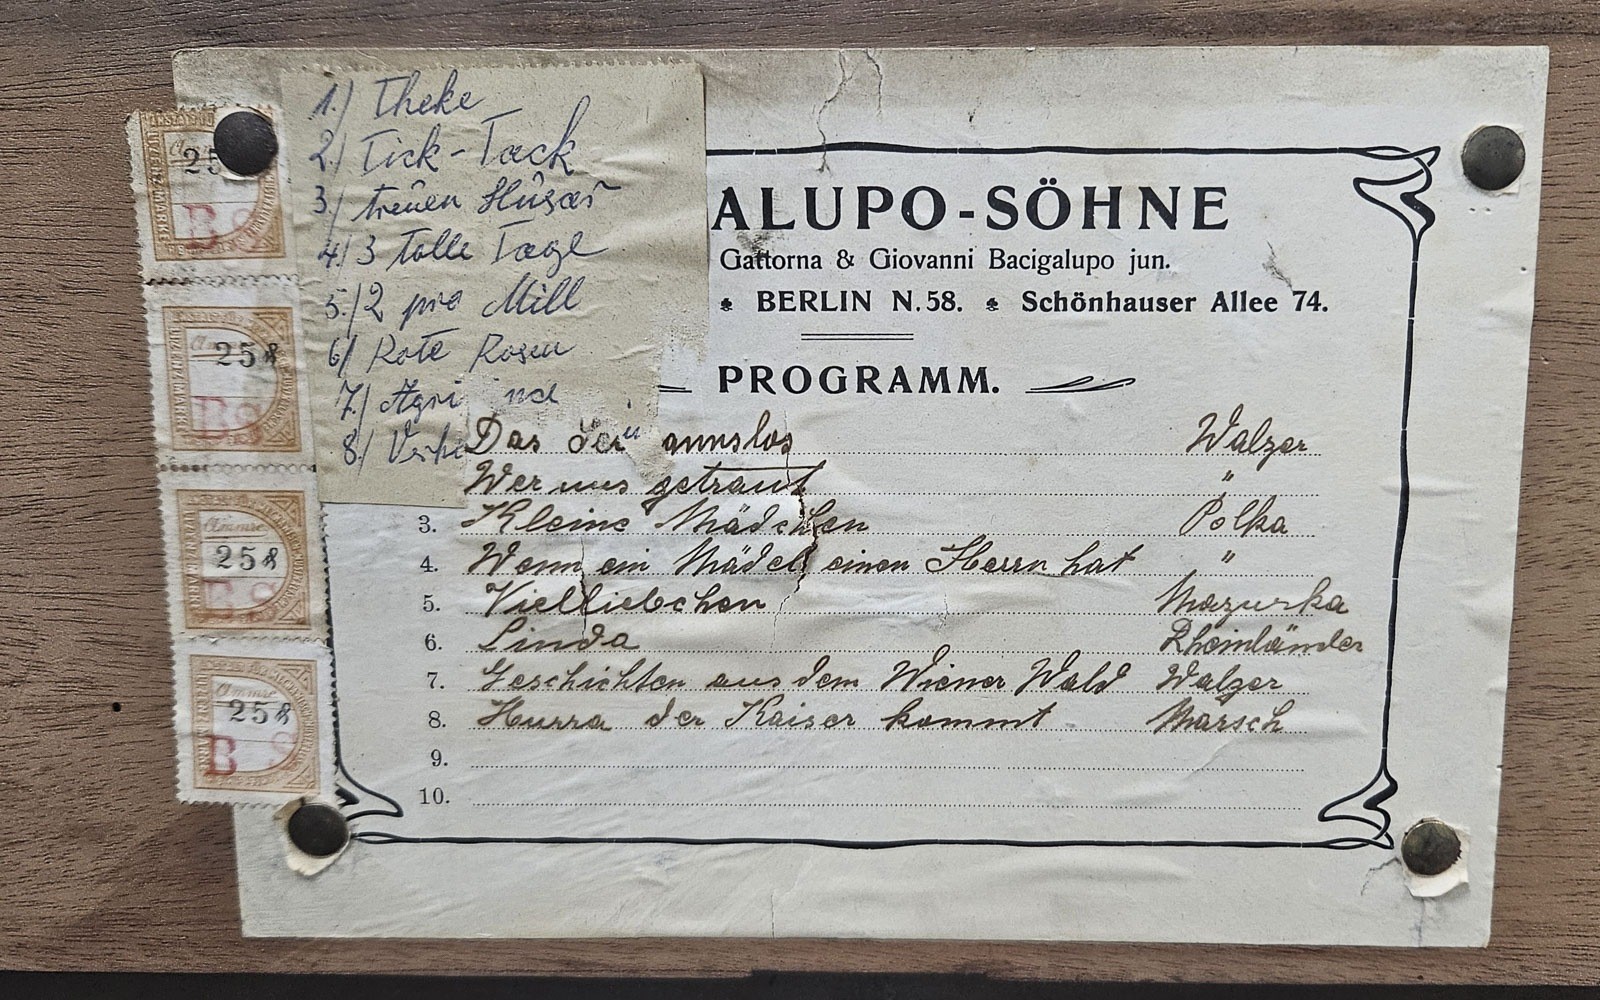 1.) Theke
2.) Tick-Tack
3.) treuen Husar
4.) 3 tolle Tage
5.) 2 pro Mill
6.) Rote Rosen
7.) Agri na
8.) Verke
ALUPO-SÖHNE
Gattorna & Giovanni Bacigalupo jun.
BERLIN N. 58. Schönhauser Allee 74.
PROGRAMM.
Das annslos Walzer
Wer uns getraut "
3. Kleine Mädchen Polka
4. Wenn ein Mädel einen Herrn hat "
5. Vielliebchen Mazurka
6. Linda Rheinländer
7. Geschichten aus dem Wiener Wald Walzer
8. Hurra der Kaiser kommt Marsch
9.
10.
25
B 9
25 8
B 9
25 8
B 9
25 8
B 9